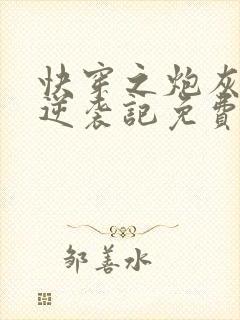 快穿之炮灰
逆袭記免費
邹善水